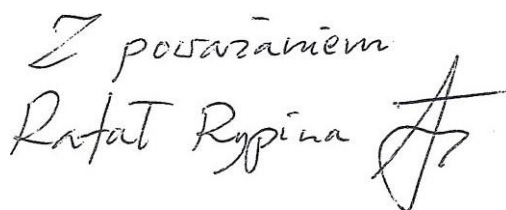 Z poważaniem
Rafał Rypina